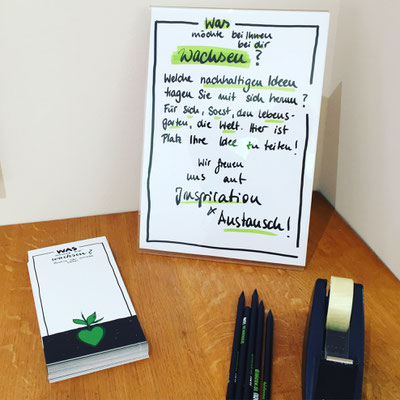 Was
möchte bei Ihnen
bei dir
wachsen?
Welche nachhaltigen Ideen
tragen Sie mit sich herum?
Für sich, Soest, den Lebens-
garten, die Welt. Hier ist
Platz Ihre Idee zu teilen!
Wir freuen
uns auf
Inspiration
& Austausch!
WAS
wachsen?